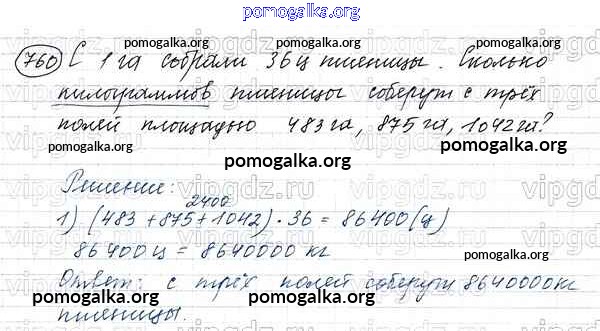 pomogalka.org
760 С 1 га собрали 36 ц пшеницы. Сколько
pomogalka.org pomogalka.org
килограммов пшеницы соберут с трёх
полей площадью 483 га, 875 га, 1042 га?
pomogalka.org
Решение:
2400
1) (483 + 875 + 1042) · 36 = 86400 (ц)
pomogalka.org pomogalka.org
86400 ц = 8640000 кг
Ответ: с трёх полей соберут 8640000 кг
pomogalka.org pomogalka.org
пшеницы.
pomogalka.org